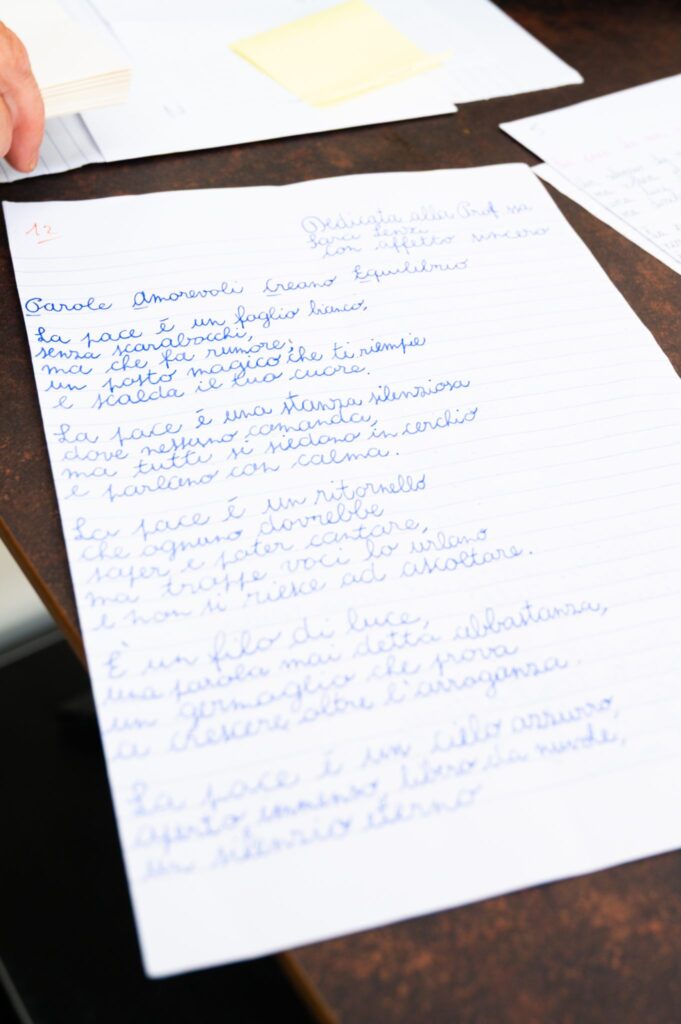 12
Dedicata alla Prof.ssa
Sara Lenzi
con affetto sincero
Parole Amorevoli Creano Equilibrio
La pace é un foglio bianco,
senza scarabocchi,
ma che fa rumore;
un posto magico che ti riempie
e scalda il tuo cuore.
La pace é una stanza silenziosa
dove nessuno comanda,
ma tutti si siedono in cerchio
e parlano con calma.
La pace é un ritornello
che ognuno dovrebbe
saper e poter cantare,
ma troppe voci lo urlano
e non si riesce ad ascoltare.
É un filo di luce,
una parola mai detta abbastanza,
un germoglio che prova
a crescere oltre l'arroganza.
La pace é un cielo azzurro,
aperto, immenso, libero da nuvole,
un silenzio eterno